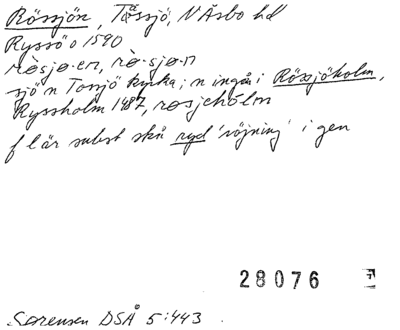 Rössjön, Tåssjö, N Åsbo hd
Ryssö o 1590
rö̀sjø.en, rø̀.sjø.n
sjö n Tossjö kyrka; n ingår i Rössjöholm,
Ryssholm 1487, røsjehólm
f l är subst skå ryd 'röjning' i gen
28076
Sørensen DSÅ 5:443